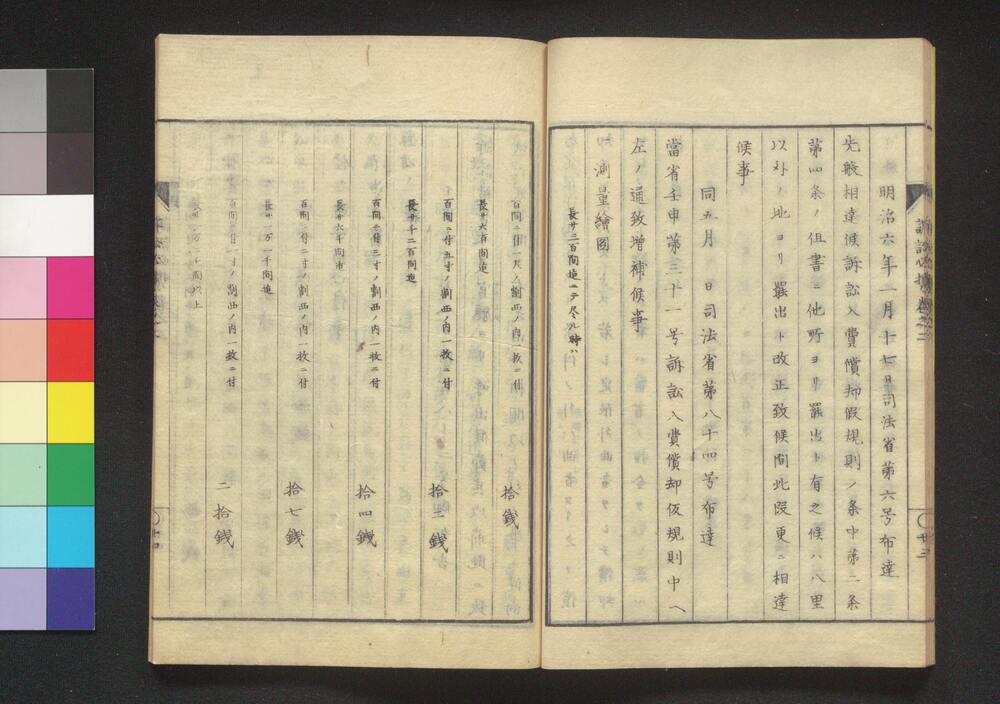 明治六年一月十七日司法省第六号布達
先般相達候訴訟入費償却假規則ノ条中第二条
第四条ノ但書ニ他所ヨリ罷出ト有之候ハ八里
以外ノ地ヨリ罷出ト改正致候間此段更ニ相達
候事
同五月 日司法省第八十四号布達
當省壬申第三十一号訴訟入費償却仮規則中ヘ
左ノ通致増補候事
一測量繪圖
長サ三百間迠ニテ尽ル時ハ
百間ニ付一尺ノ割西ノ内一枚ニ付 拾銭
長サ六百間迠
百間ニ付五寸ノ割西ノ内一枚ニ付 拾二銭
長サ千二百間迠
百間ニ付三寸ノ割西ノ内一枚ニ付 拾四銭
長サ六千間迠
百間ニ付二寸ノ割西ノ内一枚ニ付 拾七銭
長サ一万一千間迠
百間ニ付一寸ノ割西ノ内一枚ニ付 二拾銭